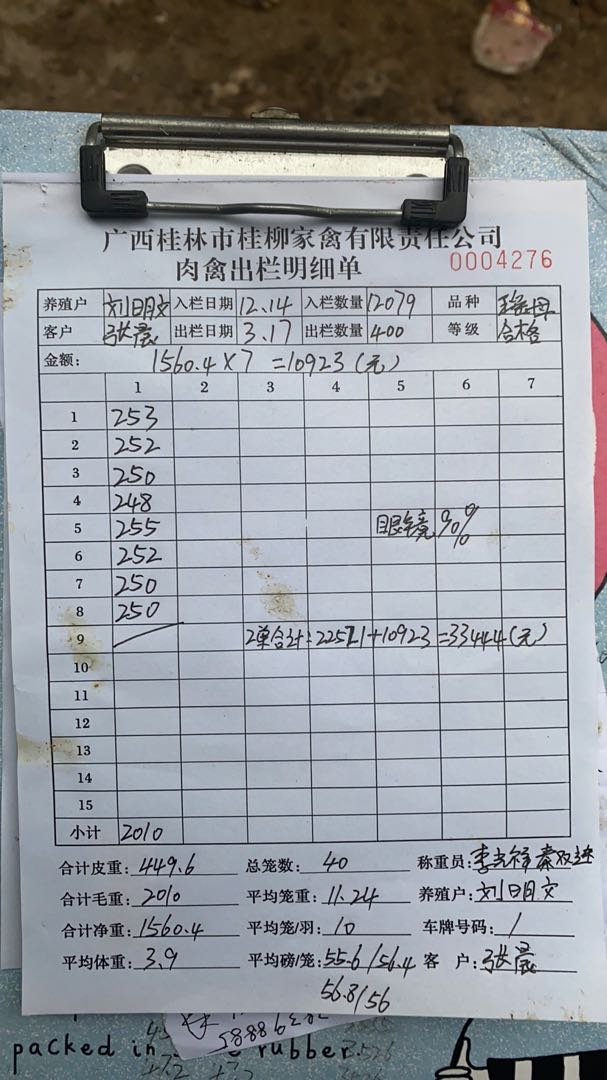 广西桂林市桂柳家禽有限责任公司
肉禽出栏明细单 0004276
养殖户 刘明文 入栏日期 12.14 入栏数量 12079 品种
客户 张晨 出栏日期 3.17 出栏数量 400 等级 合格
金额： 1560.4×7=10923（元）
1 2 3 4 5 6 7
1 253
2 252
3 250
4 248
5 255 眼镜 %
6 252
7 250
8 250
9 2单合计：22521+10923=33444（元）
10
11
12
13
14
15
小计 2010
合计皮重：449.6 总笼数：40 称重员：
合计毛重：2010 平均笼重：11.24 养殖户：刘明文
合计净重：1560.4 平均笼/羽：10 车牌号码：/
平均体重：3.9 平均磅/笼：55.6/56.4 客 户：张晨
56.8/56
packed in rubber